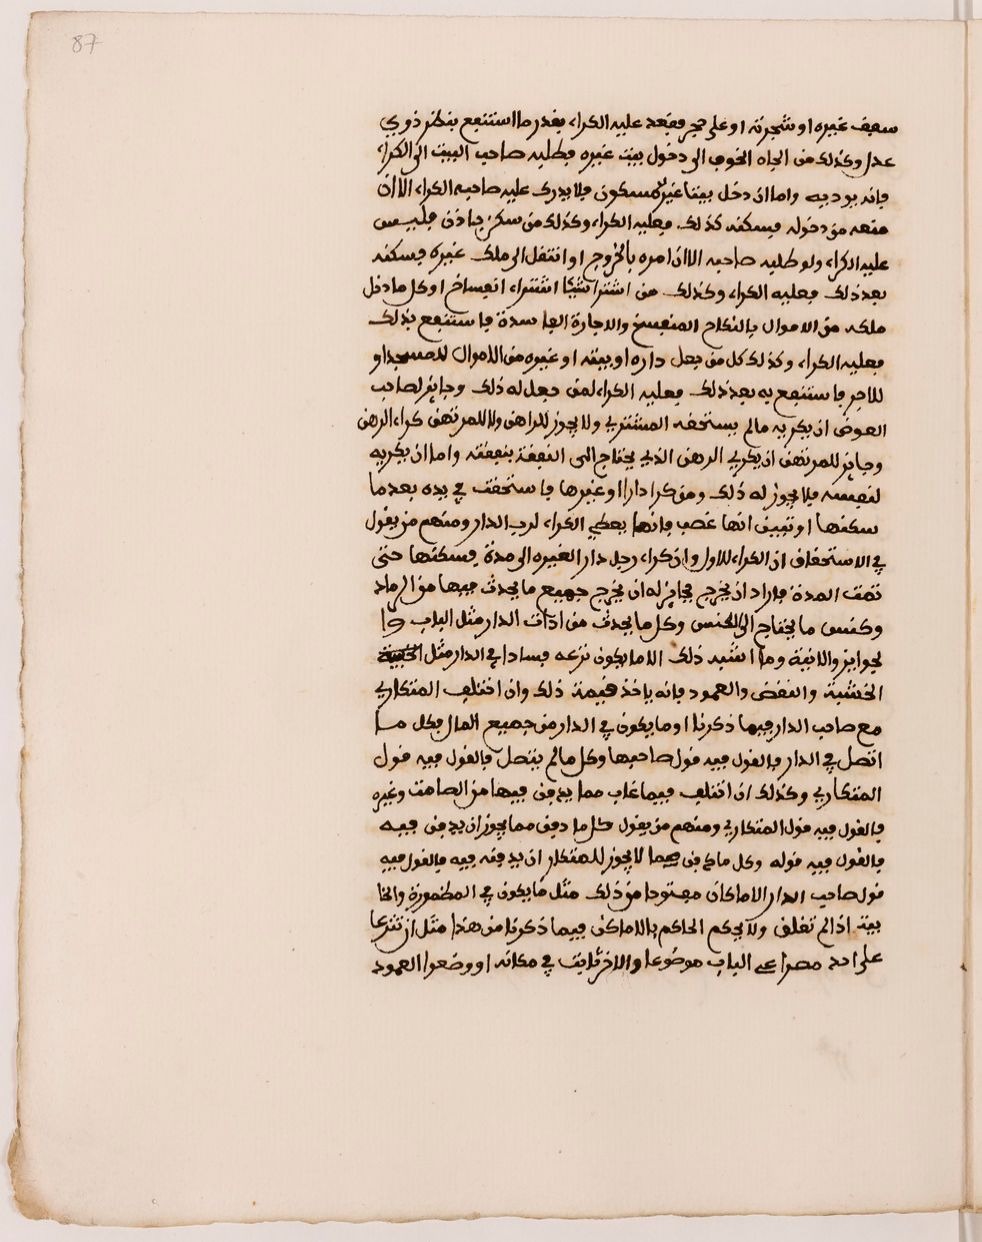 87
سقف غيره او شجرته او على حجر فقعد عليه الكراء بقدر ما استنفع بنظر ذوي
عدل وكذلك من الجاه الخوف الى دخول بيت غيره فطلبه صاحب البيت الى الكراء
فانه يوديه واما ان دخل بيتا غير مسكون فلا يدرك عليه صاحبه الكراء الا ان
منعه من دخوله فسكنه كذلك فعليه الكراء وكذلك من سكن باذن فليس
عليه الكراء ولو طلبه صاحبه الا ان امره بالخروج او انتقل الى ملك غيره فسكنه
بعد ذلك فعليه الكراء وكذلك من اشترا شيئا اشتراء انفساخ او كل ما دخل
ملكه من الاموال بالنكاح المنفسخ والاجارة الفاسدة فاستنفع بذلك
فعليه الكراء وكذلك كل من جعل داره او بيته او غيره من الاموال للمسجد او
للاجر فاستنفع به بعد ذلك فعليه الكراء لمن جعل له ذلك وجايز لصاحب
العوض ان يكريه مالم يستحقه المشتري ولا يجوز للراهن ولا للمرتهن كراء الرهن
وجايز للمرتهن ان يكري الرهن الذي يحتاج الى النفقة بنفقته واما ان يكريه
لنفسه فلا يجوز له ذلك ومن كرا دارا او غيرها فاستحقت في يده بعدما
سكنها او تبين انها غصب فانها يعطي الكراء لرب الدار ومنهم من يقول
في الاستحقاق ان الكراء للاول وان كراء رجل دار الغيره الى مدة فسكنها حتى
تمت المدة فاراد ان يخرج فجايز له ان يخرج جميع ما يحدث فيها من الرماد
وكنس ما يحتاج الى الكنس وكل ما يحدث من ادات الدار مثل الباب وا
لجوايز والانية وما اشبه ذلك الا ما يكون نزعه فسادا في الدار مثل
الخشبة والنقض والعمود فانه ياخذ قيمة ذلك وان اختلف المتكاري
مع صاحب الدار فيما ذكرنا او ما يكون في الدار من جميع المال فكل ما
اتصل في الدار فالقول فيه قول صاحبها وكل مالم يتصل فالقول فيه قول
المتكاري وكذلك ان اختلف فيما غاب مما يدفن فيها من الصامت وغيره
فالقول فيه قول المتكاري ومنهم من يقول كل ما دفن مما يجوز ان يدفن فيه
فالقول فيه قوله وكل ما دفن فيما لا يجوز للمتكار ان يدفنه فيه فالقول فيه
قول صاحب الدار الا ما كان مفتوحا من ذلك مثل ما يكون في المطمورة والخا
بية اذا لم تغلق ولا يحكم الحاكم بالاماكن فيما ذكرنا من هذا مثل ان تنزعا
على احد مصراعي الباب موضوعا والاخر ثابت في مكانه او وضعوا العمود